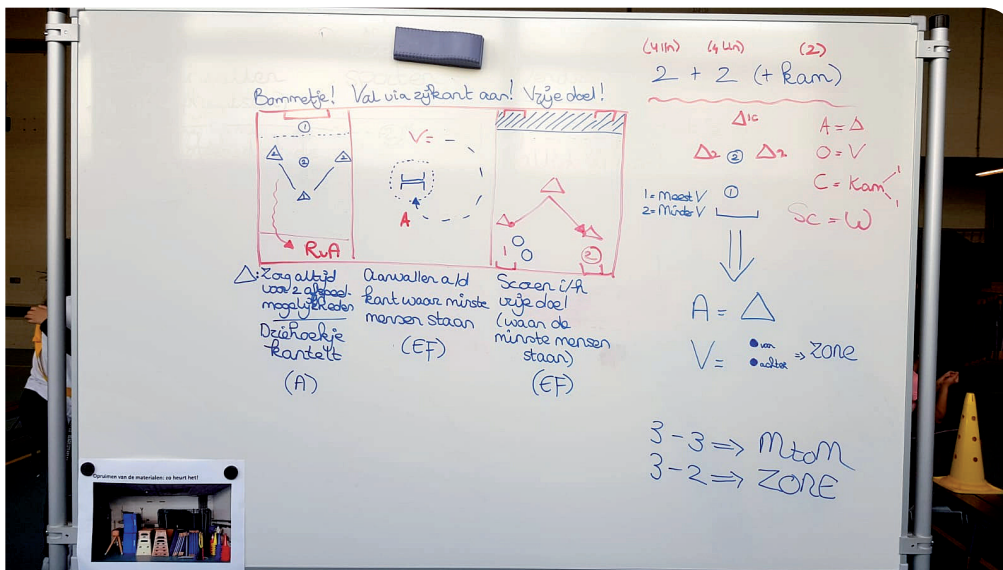 Bommetje! Val via zijkant aan! Vrije doel!
1
2 2 2
2
RvA
V=
A
1 2
△: Zorg altijd
voor 2 afspeel-
mogelijkheden
Driehoekje
kantelt
(A)
Aanvallen a/d
kant waar minste
mensen staan
(EF)
Scoren i/h
vrije doel
(waar de
minste mensen
staan)
(EF)
(4lln) (4lln) (2)
2 + 2 (+ kam)
△1c
△2 2 △2
1
1 = Meest V
2 = Minste V
A = △
O = V
C = Kam 1 1
Sc = W
A = △
V = • voor • achter ⇒ ZONE
3-3 ⇒ MtoM
3-2 ⇒ ZONE
Opruimen van de materialen: zo heurt het!